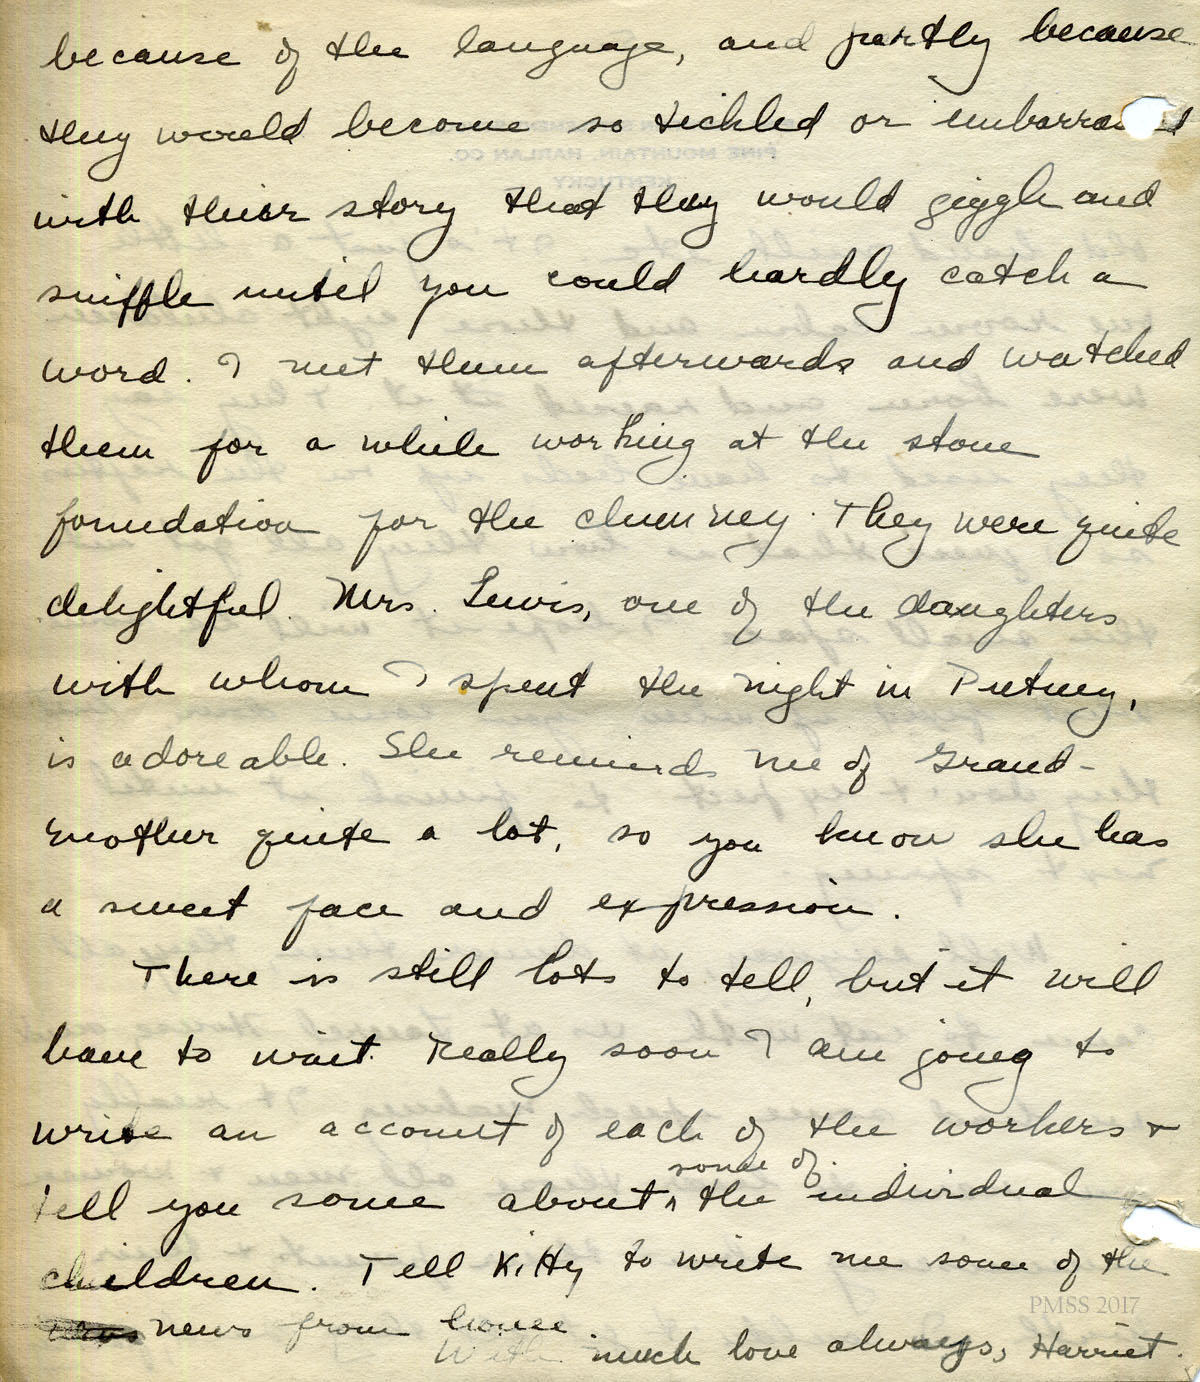 because of the language, and partly because
they would become so tickled or embarra d
with their story that they would giggle and
sniffle until you could hardly catch a
word. I met them afterwards and watched
them for a while working at the stone
foundation for the chimney. They were quite
delightful. Mrs. Lewis, one of the daughters
with whom I spent the night in Putney,
is adoreable. She reminds me of Grand-
mother quite a lot, so you know she has
a sweet face and expression.
There is still lots to tell, but it will
have to wait. Really soon I am going to
write an account of each of the workers +
some of
tell you some about ^ the individual
children. Tell Kitty to write me some of the
news from home.
With much love always, Harriet.
PINE MOUNTAIN, HARLAN CO.
KENTUCKY
PMSS 2017